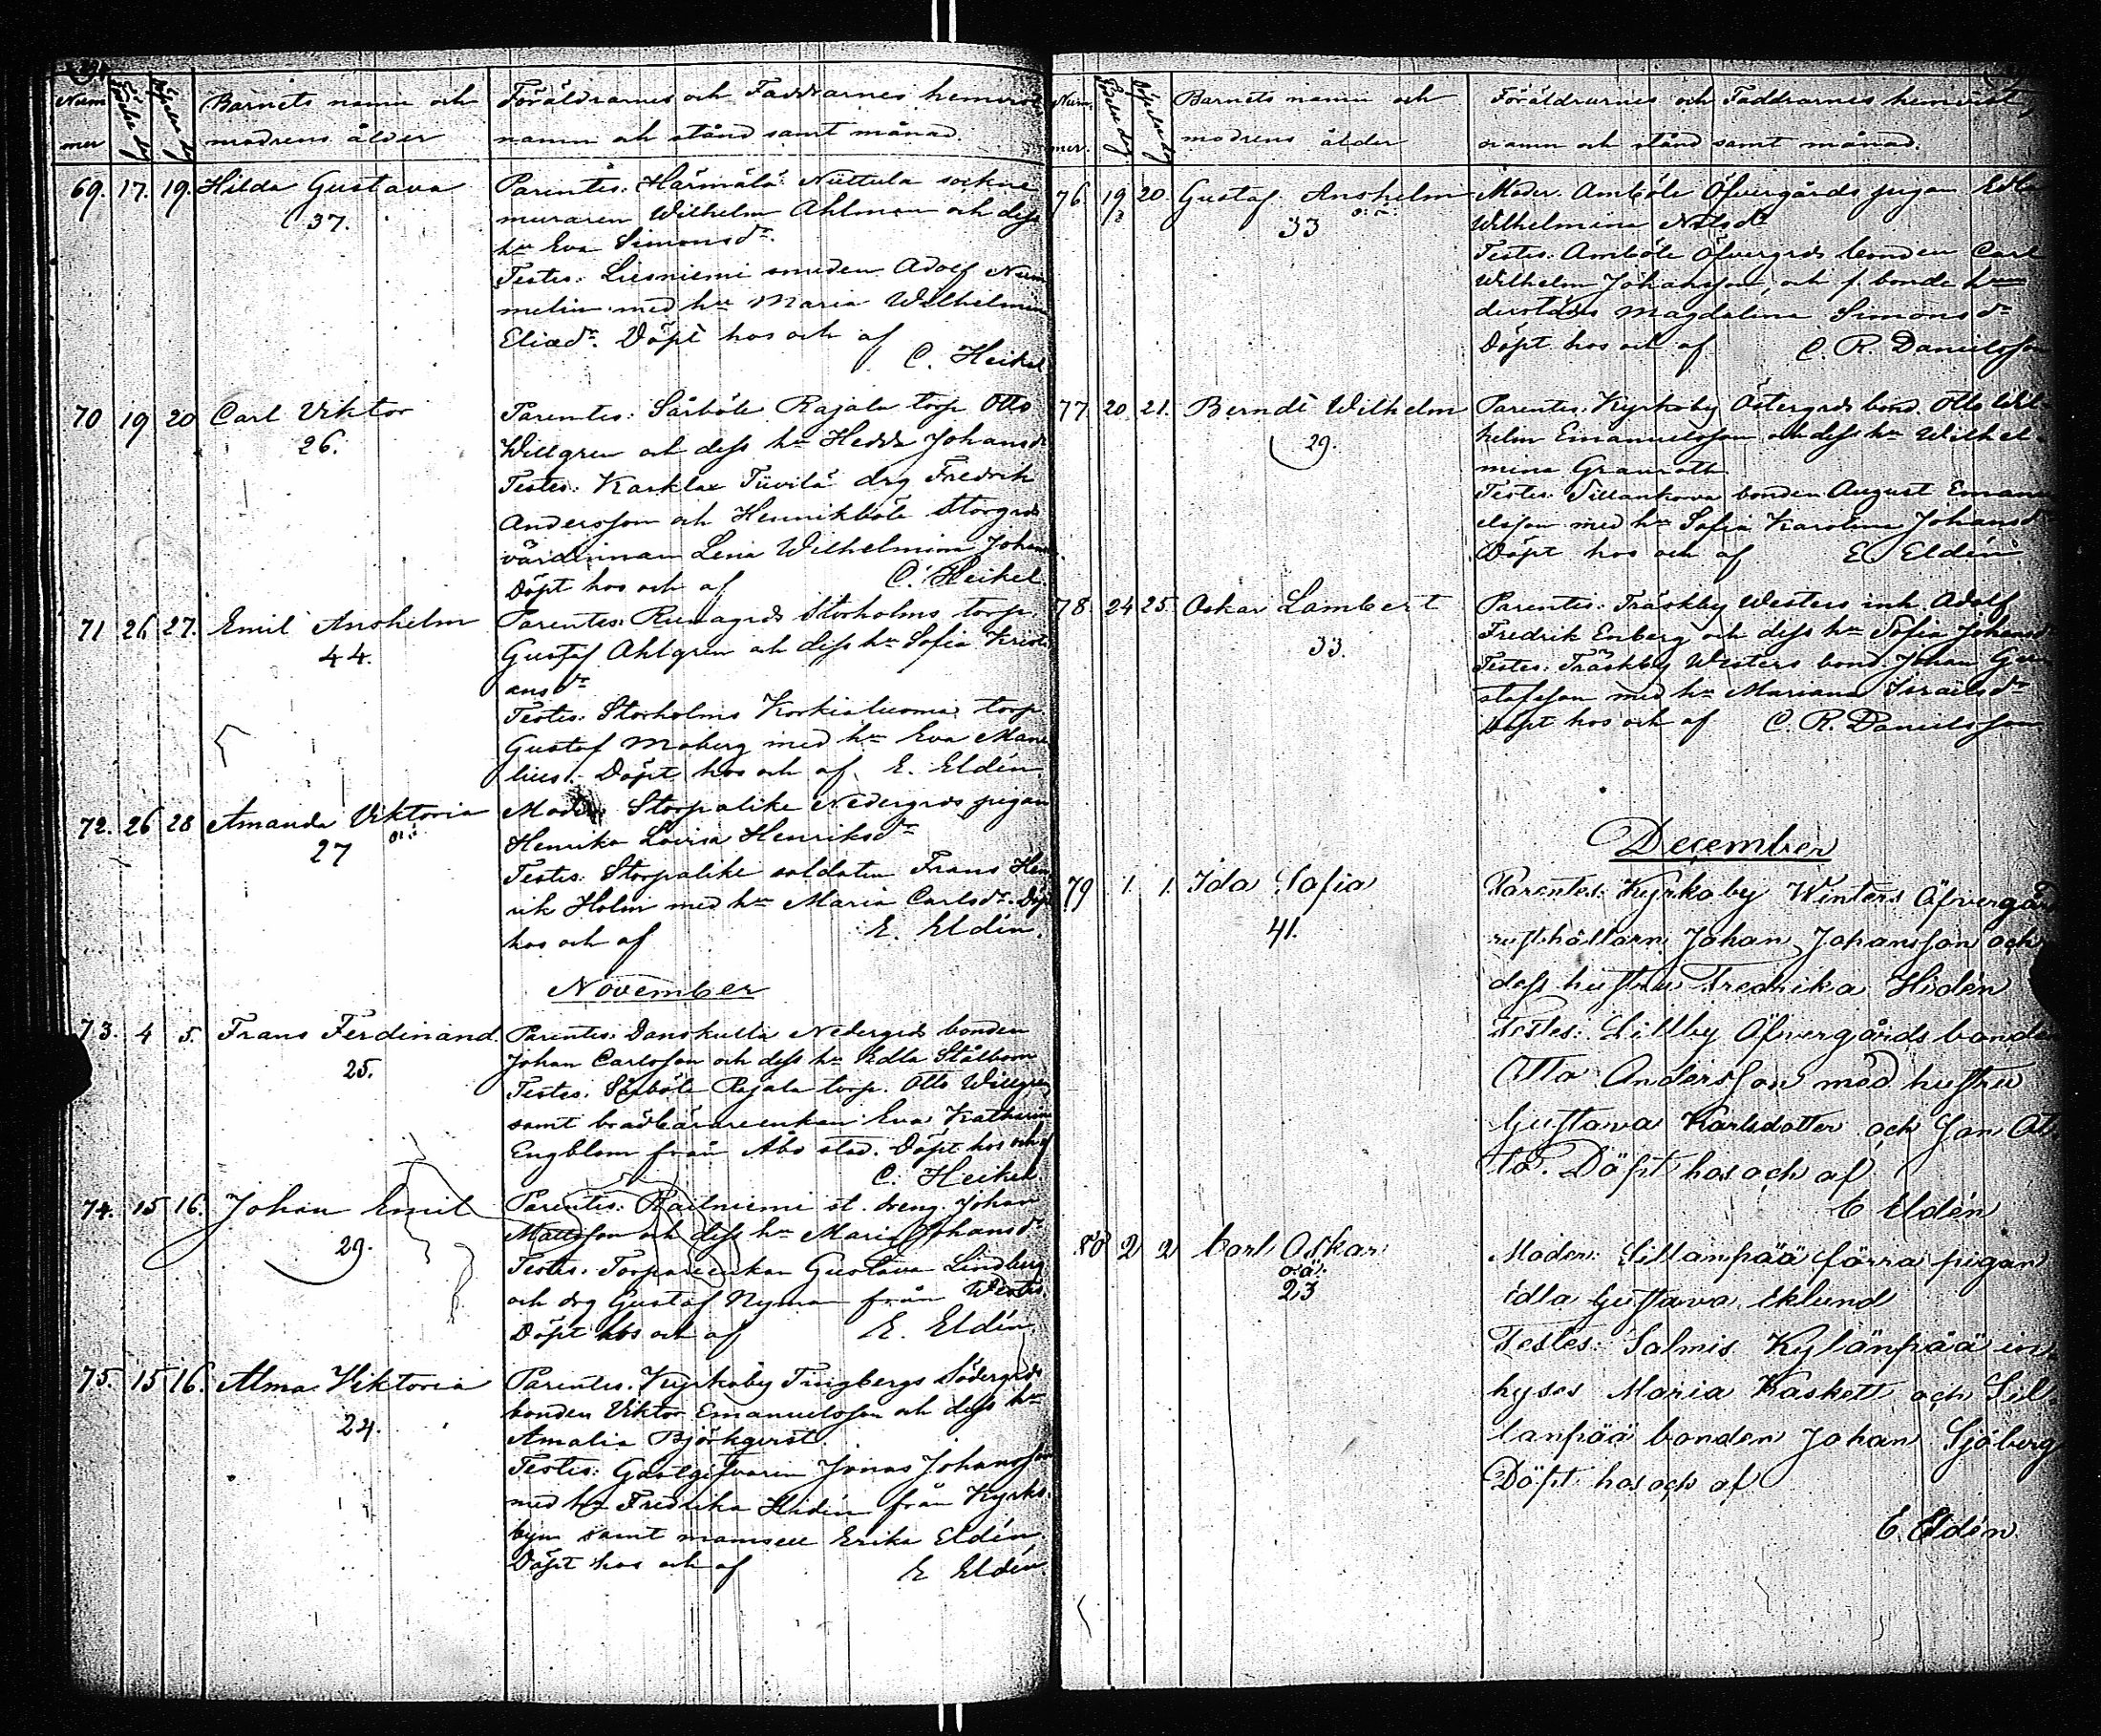 Num Födelse dag Döpelse dag Barnets namn och Föräldrarnes och Faddrarnes hemvist
mer modrens ålder namn och stånd samt månad.
69. 17. 19. Hilda Gustava Parentes: Härmälä Nuttula sockne
37. muraren Wilhelm Ahlman och dess
hu Eva Simonsdr.
Testes: Liesniemi smeden Adolf Num
melin med hu Maria Wilhelmina
Eliædr. Döpt hos och af
C. Heikel
70 19 20 Carl Viktor Parentes: Särböle Rajala torp. Otto
26. Willgren och dess hu Hedda Johansdr
Testes: Karklax Tuvilä drg Fredrik
Andersson och Henrikböle Storgrds
värdinnan Lena Wilhelmina Johans
Döpt hos och af C. Heikel
71 26 27. Emil Anshelm Parentes: Storholms torp.
44. Gustaf Ahlgren och dess hu Sofia Kristi
ansdr
Testes: Storholms Korkialuoma torp.
Gustaf Moberg med hu Eva Mane
lius. Döpt hos och af E. Eldén.
72. 26 28 Amanda Viktoria Moder: Storpalike Nedergrds pigan
27 o: ä: Henrika Lovisa Henriksdr
Testes: Storpalike soldaten Frans Hen
rik Holm med hu Maria Carlsdr. Döpt
hos och af E. Eldén.
November
73. 4 5. Frans Ferdinand. Parentes: Danskulla Nedergrds bonden
25. Johan Carlsson och dess hu Edla Stålbom
Testes: Särböle Rajala torp. Otto Willgren
samt enkan Eva Katharina
Engblom från Åbo stad. Döpt hos och af
C. Heikel.
74. 15 16. Johan Emil Parentes: Railniemi st. dreng. Johan
29. Mattsson och dess hu Maria Johansdr
Testes: Torpareenkan Gustava Lindberg
och drg Gustaf Nyman från
Döpt hos och af E. Eldén
75. 15 16. Alma Viktoria Parentes. Kyrkoby Tingbergs Södergrds
24. bonden Viktor Emanuelsson och dess hu
Amalia Björkqvist.
Testes: Gästgifvaren Jonas Johansson
med hu Fredrika Hidén från Kyrko
byn samt mamsell Erika Eldén.
Döpt hos och af E Eldén.
Num Födelse dag Döpelse dag Barnets namn och Föräldrarnes och Faddrarnes hemvist,
mer. modrens ålder namn och stånd samt månad.
76 19 20. Gustaf Anshelm Moder. Amböle Öfvergårds pigan Edla
33 o: ä: Wilhelmina Nilsdr
Testes: Amböle Öfvergrds bonden Carl
Wilhelm Johansson, och f. bonde hu
derstädes Magdalena Simonsdr
Döpt hos och af C. R. Danielsson
77. 20. 21. Berndt Wilhelm Parentes: Kyrkoby Östergrds bond. Otto Wil
29. helm Emanuelsson och dess hu Wilhel
mina Granroth
Testes: Sillankorva bonden August Emanu
elsson med hu Sofia Karolina Johansdr
Döpt hos och af E Eldén.
78. 24 25. Oskar Lambert Parentes: Träskby Westers inh. Adolf
33. Fredrik Enberg och dess hu Sofia Johansdr
Testes: Träskby Westers bond. Johan Gu
stafsson med hu Mariana Israelsdr
Döpt hos och af C. R. Danielsson
December
79 1. 1. Ida Sofia Parentes: Kyrkoby Winters Öfvergårds
41. rusthållarn Johan Johansson och
dess hustru Fredrika Hidén
Testes: Lillby Öfvergårds bonden
Otto Andersson med hustru
Gustawa Karlsdotter och son Ot
to. Döpt hos och af
E Eldén
80 2 2 Carl Oskar Moder: Sillanpää förra pigan
o: ä: Edla Gustava Eklund
23 Testes: Salmis Kylänpää in
hyses Maria Kaskett och Sil
lanpää bonden Johan Sjöberg
Döpt hos och af
E. Eldén